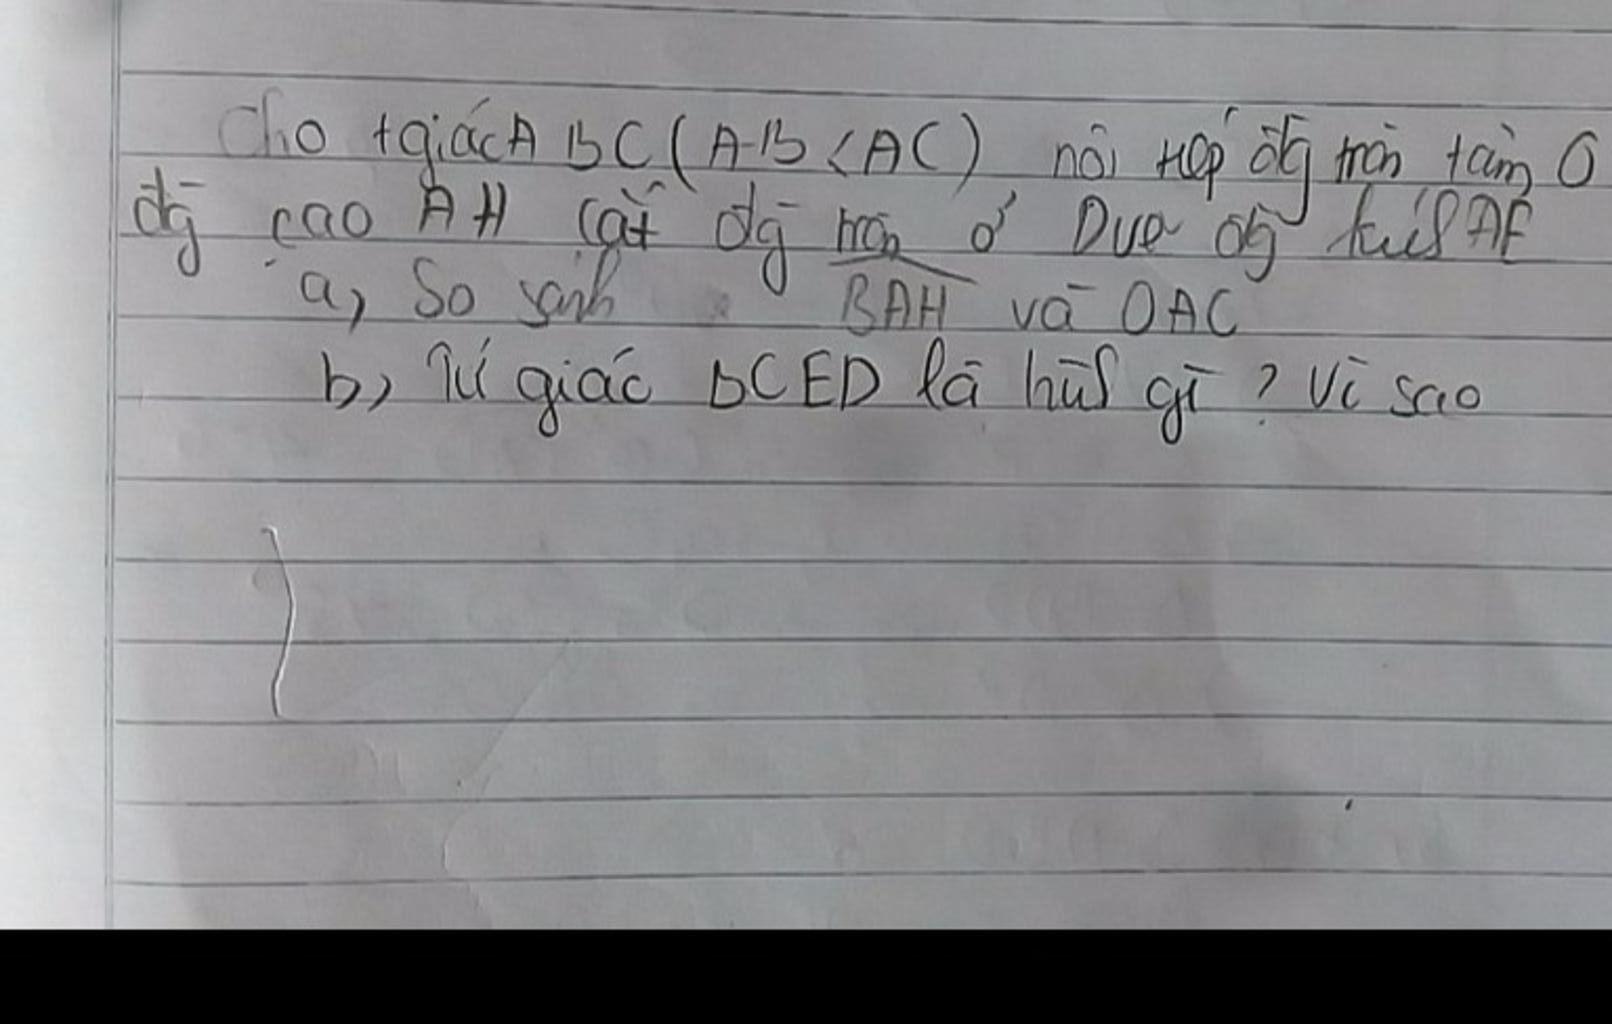 Cho tgiác ABC (AB < AC) nội tiếp đg tròn tâm O
đg cao AH cắt đg tròn ở D vẽ đg kính AE
a, So sánh BAH và OAC
b, Tứ giác BCED là hình gì ? Vì sao